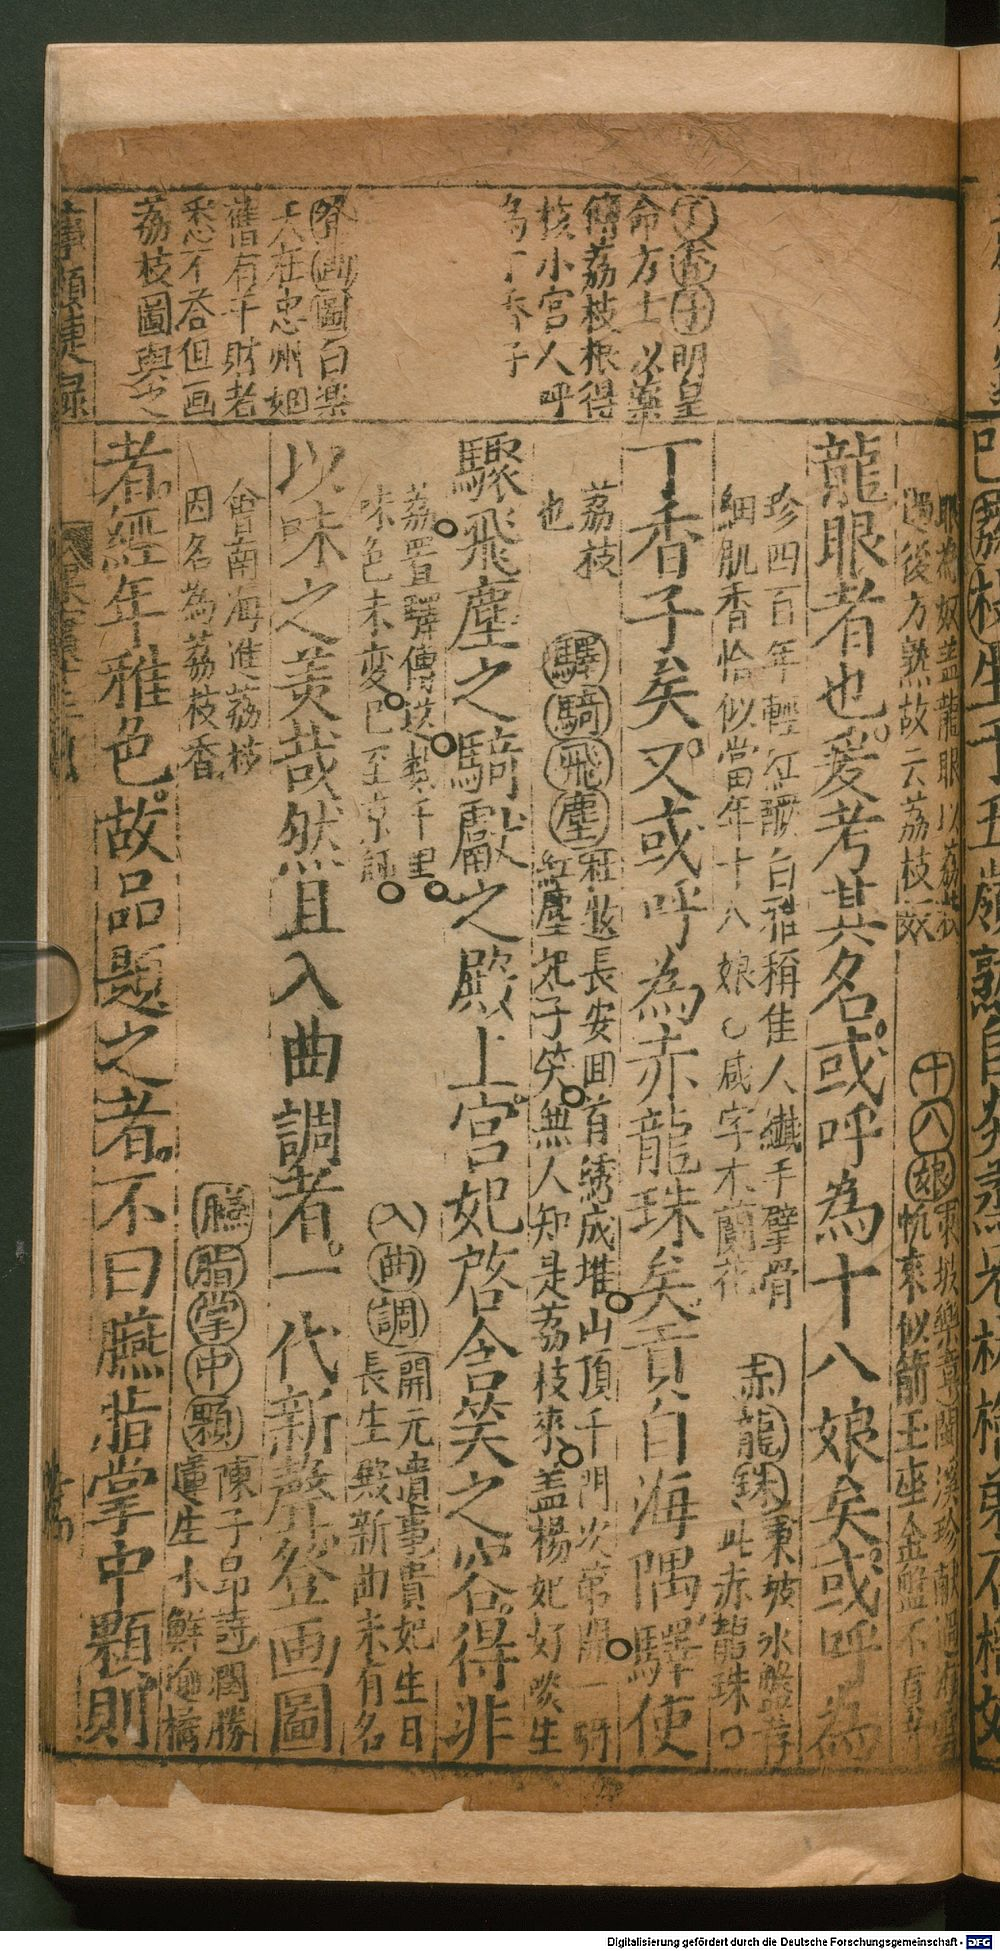 丁香子明皇
命方士以藥
傅荔枝根得
核小宮人呼
為丁香子
登画圖白樂
天在忠州姻
舊有千財者
悉不答但画
荔枝圖與之
事類捷錄
眼為奴盖龍眼以荔枝
過後方熟故云荔枝奴
十八娘東坡樂章閩溪珍献過海雲
帆來似箭玉座金盤不貢奇
龍眼者也爰考其名或呼為十八娘矣或呼為
珍四百年輕紅釀白雅稱佳人纖手擘骨
細肌香恰似當年十八娘○咸字木蘭花
赤龍珠東坡氷盤荐
此赤龍珠○
丁香子矣又或呼為赤龍珠矣貢自海隅驛使
荔枝
也
驛騎飛塵杜牧長安回首綉成堆山頂千門次第開一騎
紅塵妃子笑無人知是荔枝來盖楊妃好啖生
驟飛塵之騎獻之殿上宮妃啓含笑之容得非
荔置驛傳送數千里
味色未変已至京師
入曲調開元遺事貴妃生日
長生殿新曲未有名
以味之美哉然且入曲調者一代新聲登画圖
會南海進荔枝
因名為荔枝香
臙脂掌中顆陳子昂詩潤勝
蓮生水鮮逾橘
者經年雅色故品題之者不曰臙脂掌中顆則
Digitalisierung gefördert durch die Deutsche Forschungsgemeinschaft - DFG